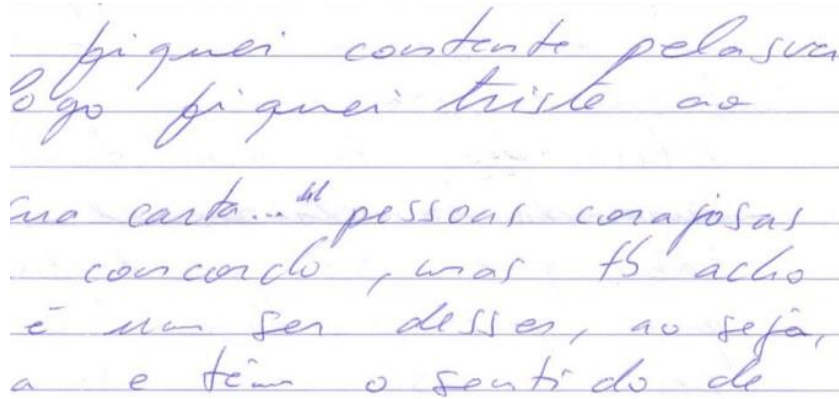 fiquei contente pela sua
logo fiquei triste ao
sua carta... "pessoas corajosas
concordo, mas tb acho
é um ser desses, ou seja,
a e têm o sentido de